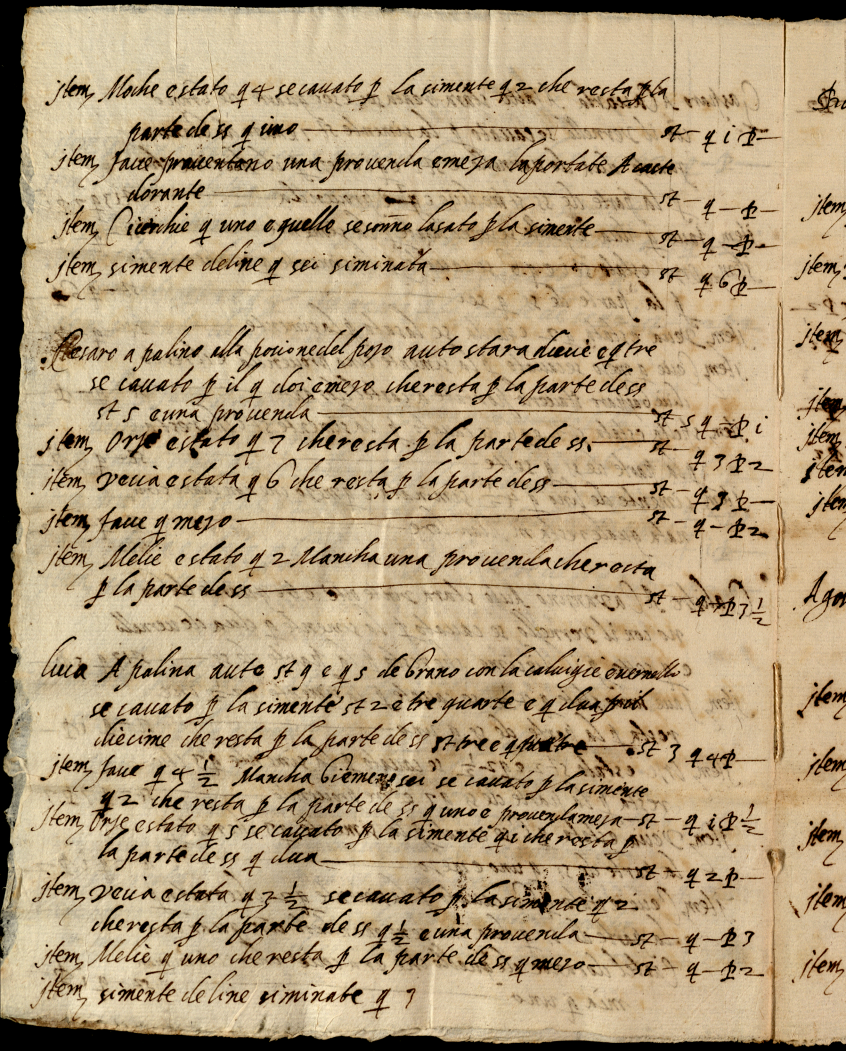 jtem Moche e stato q 4 se cavato p la simente q 2 che resta p la
parte de ss q uno — st — q i P —
jtem fave proventano una provenda e meza la portate A caete
dorante — st — q — P —
jtem Cicerchie q uno e quelle se sonno lasato p la simente — st — q — P —
jtem simente de line q sei siminata — st q 6 P —
Cesaro a palino alla posione del pozo auto stara dieci e q tre
se cavato p il q doi e mezo che resta p la parte de ss
st 5 e una provenda — st 5 q — P i
jtem Orze e stato q 7 che resta p la parte de ss — st — q 3 P 2
jtem vecia e stata q 6 che resta p la parte de ss — st — q 3 P —
jtem fave q mezo — st — q — P 2
jtem Melie e stato q 2 Mancha una provenda che resta
p la parte de ss — st — q — P 3 1/2
luca A palina auto st 9 e q 5 de Grano con la calvigie e
se cavato p la simente st 2 e tre quarte e q dua p il
diecime che resta p la parte de ss st tre e q quatre — st 3 q 4 P —
jtem fave q 4 1/2 Mancha se cavato p la simente
q 2 che resta p la parte de ss q uno e provenda meza — st — q i P 1/2
jtem Orze e stato q 5 se cavato p la simente q i che resta p
la parte de ss q dua — st — q 2 P —
jtem vecia e stata q 3 1/2 se cavato p la simente q 2
che resta p la parte de ss q 1/2 e una provenda — st — q — P 3
jtem Melie q uno che resta p la parte de ss q mezo — st — q — P 2
jtem simente de line siminate q 3
jtem
jtem
jtem
jtem
jtem
jtem
jtem
Ago
jtem
jtem
jtem
jtem
jtem